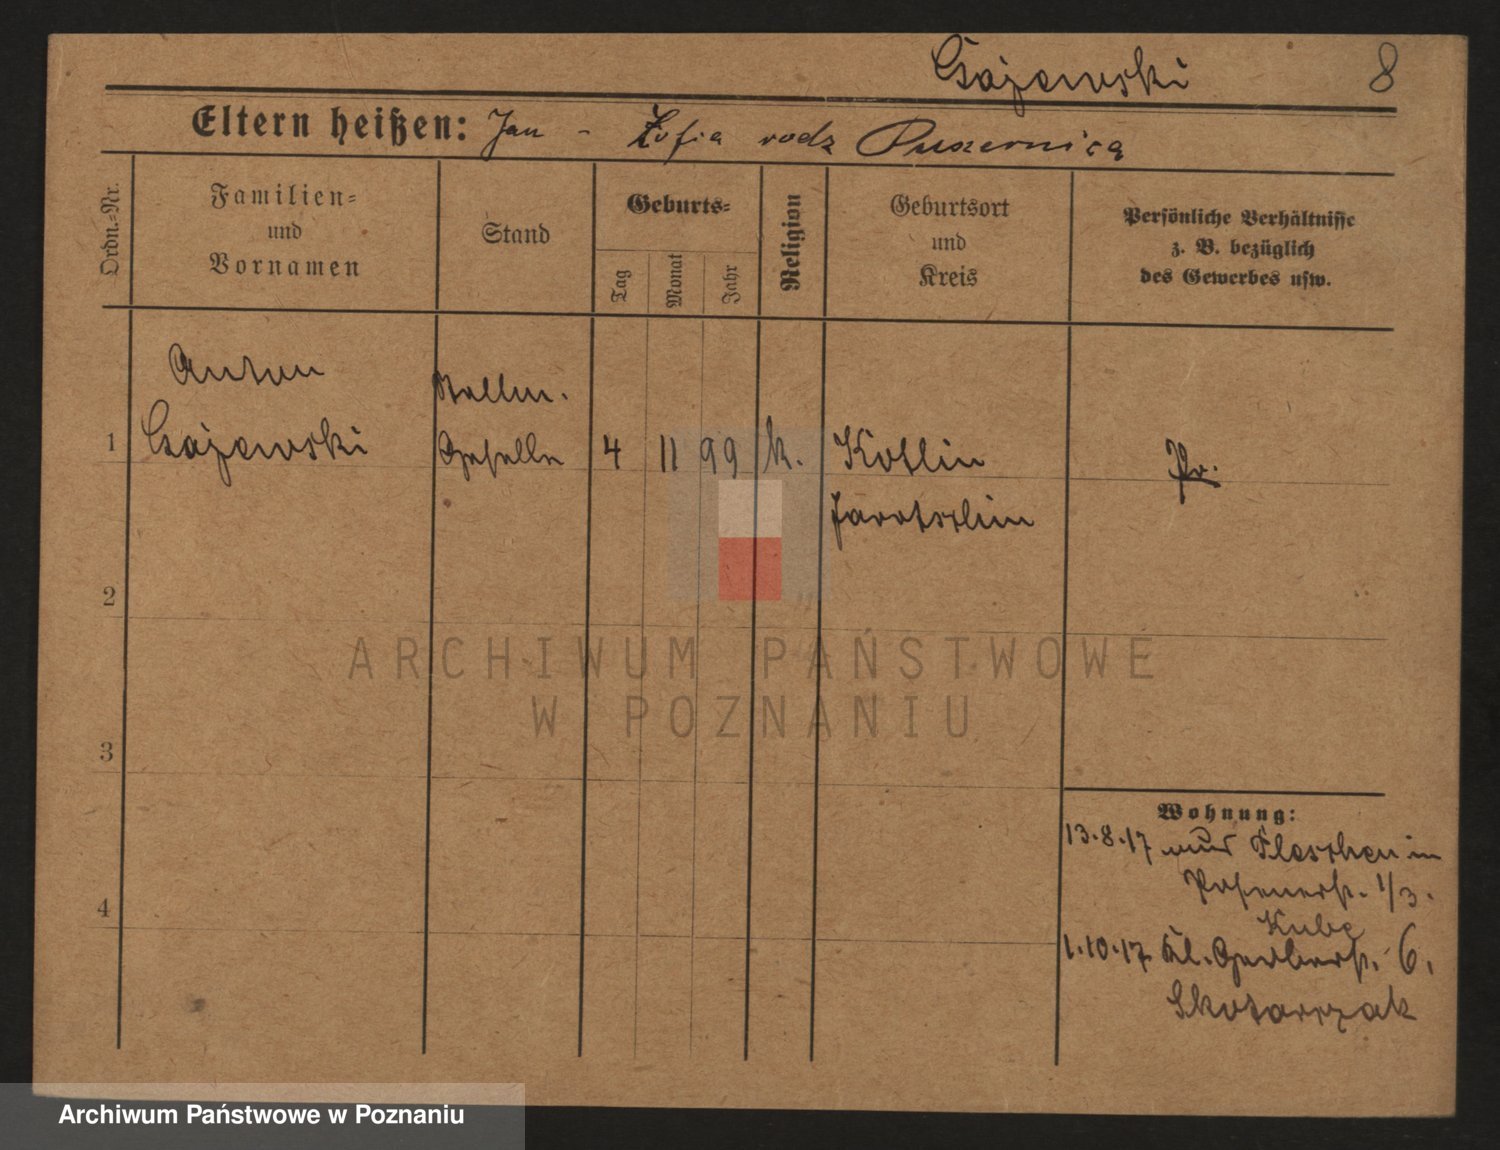 Gajewski 8
Eltern heißen: Jan - Zofia rodz
Ordn.=Nr.
Familien=
und
Vornamen
Stand
Geburts=
Tag
Monat
Jahr
Religion
Geburtsort
und
Kreis
Persönliche Verhältnisse
z. B. bezüglich
des Gewerbes usw.
Anton
1 Gajewski
Stellm.
Geselle
4 11 99 k. Kotlin
Jarotschin
Pr.
2
3
4
Wohnung:
13.8.17 Pleschen in
Posenerst. 1/3.
Kube
1.10.17 Kl. Gerberst. 6.
Skotarczak
ARCHIWUM PAŃSTWOWE
W POZNANIU
Archiwum Państwowe w Poznaniu